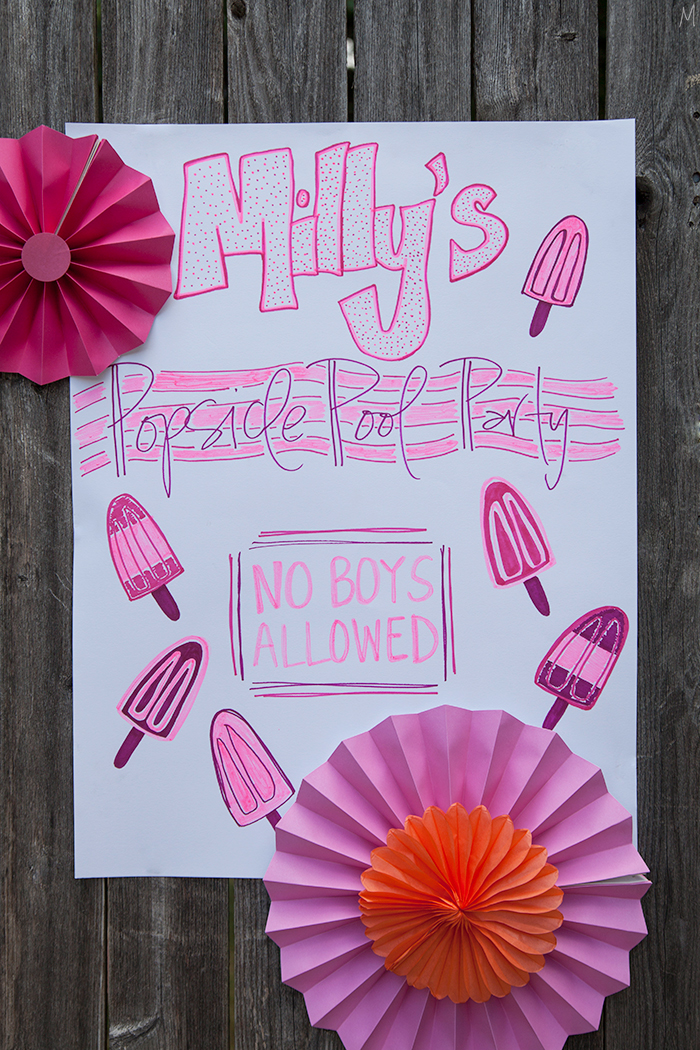 Milly's
Popsicle Pool Party
NO BOYS
ALLOWED
M